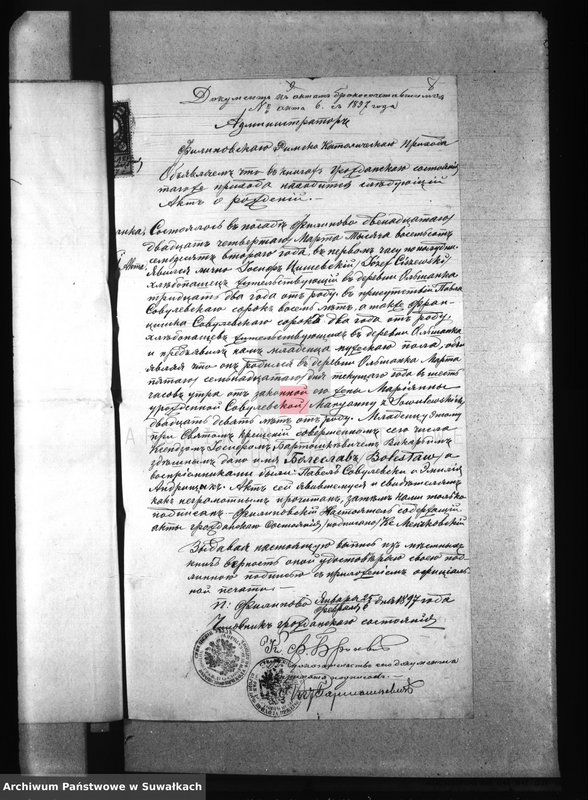 Документъ къ актамъ бракосочетавшихся
№ акта 6. въ 1897 года
Администраторъ
Филиповскаго Римско Католическаго Прихода
Объявляетъ что въ книгахъ Гражданскаго состоянія
тагоже прихода находится слѣдующій
Актъ о рожденіи.
Состоялось въ посадѣ Филиповѣ двѣнадцатаго/
двадцать четвертаго/ Марта Тысяча восемьсотъ
семьдесятъ втораго года, въ первомъ часу по полудни
явился лично Іосифъ Цишевскій/Józef Ciszewski/
хлѣбопашецъ жительствующій въ деревни Ольшанка
тридцать два года отъ роду, въ присутствіи Павла
Совулевскаго сорокъ восемь лѣтъ, а также Фран-
цишка Совулевскаго сорокъ два года отъ роду,
хлѣбопашцевъ жительствующихъ въ деревни Ольшанка
и предъявилъ намъ младенца мужескаго пола, объ-
являя что онъ родился въ деревни Ольшанка Марта
пятаго/ семнадцатаго/ дня текущаго года въ шесть
часовъ утра отъ законной его жены Маріанны
урожденной Совулевской/Maryanny z Sowulewskich/
двадцать девять лѣтъ отъ роду. Младенцу этому
при Святомъ крещеніи совершенномъ сего числа
Ксендзомъ Іосифомъ Бартошкевичемъ Викаріемъ
здѣшнимъ дано имя Болеславъ/Bolesław/ а
воспріемниками были: Павелъ Совулевски и Эмилія
Андрищукъ. Актъ сей явившемуся и свидѣтелямъ
какъ неграмотнымъ прочитанъ, затѣмъ нами только
подписанъ. Филиповскій Настоятель содержащій
акты гражданскаго Состоянія/подписано/Кс.
Выдавая настоящую выпись изъ мѣстныхъ
книгъ вѣрность оной удостовѣряю своею под-
линною подписью съ приложеніемъ оффиціаль-
ной печати.
п: Филипово Января 25/Февраля 6 дня 1897 года
Чиновникъ гражданскаго состоянія
Archiwum Państwowe w Suwałkach